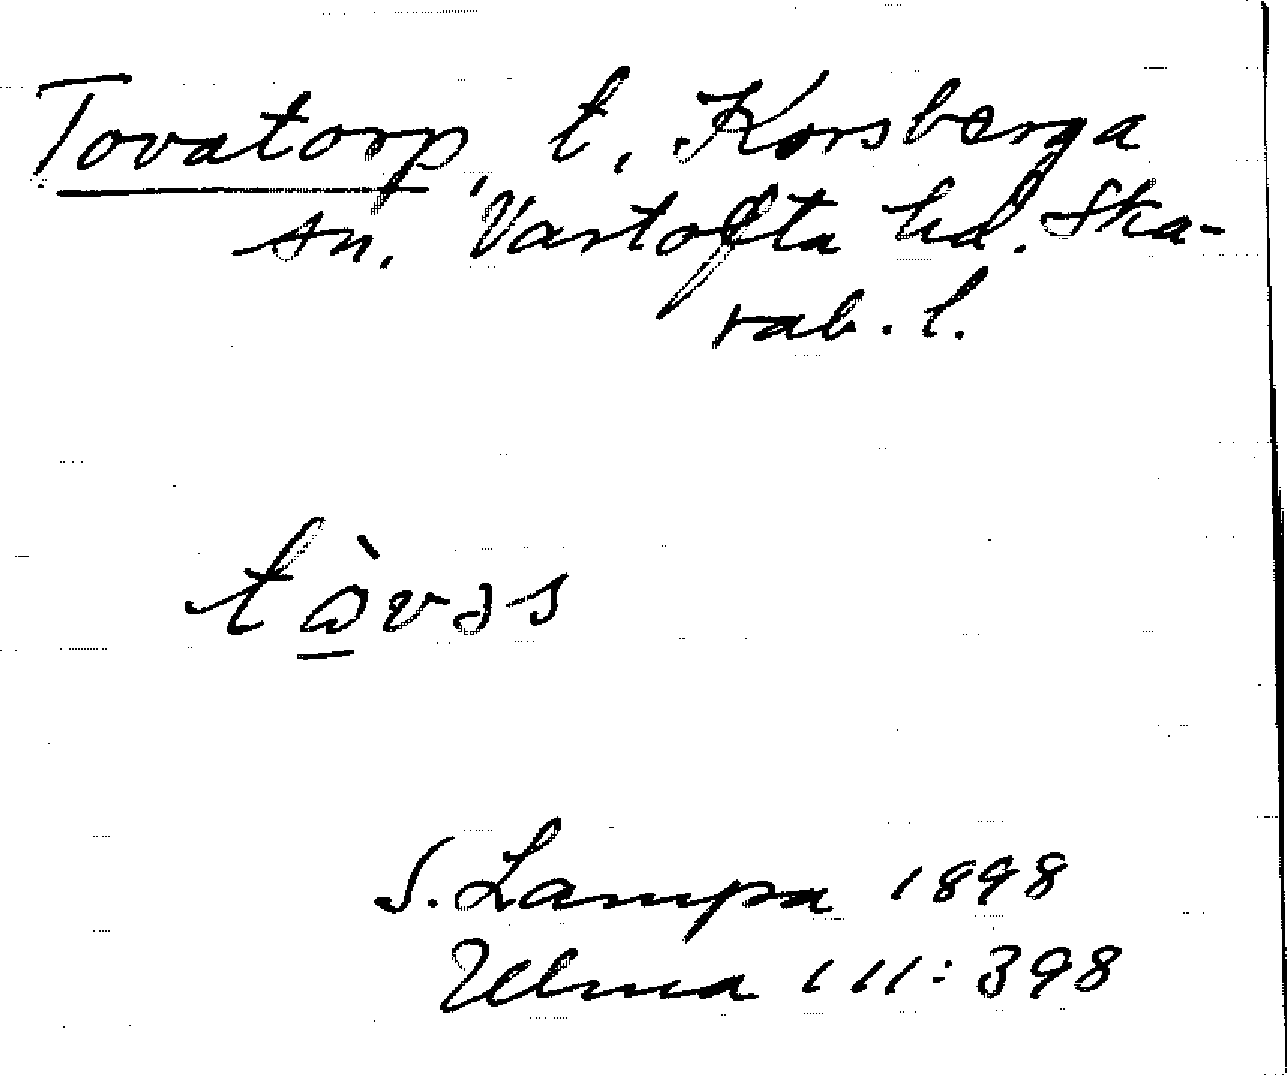 Tovatorp, t. Korsberga
sn. Vartofta hd. Ska-
rab. l.
tòvəs
S. Lampa 1898
Ulma 111:398